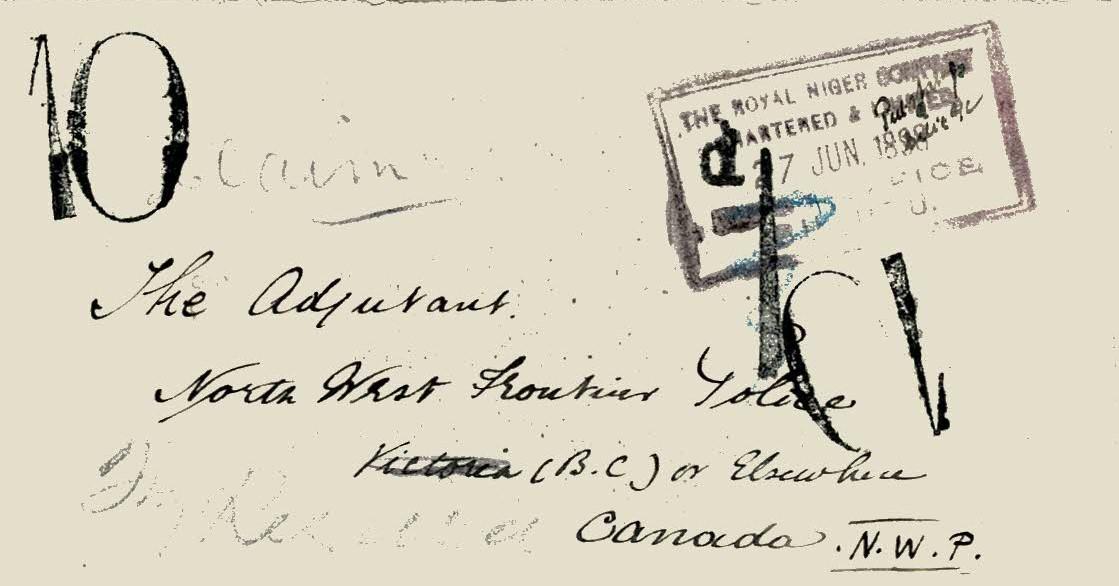 10
THE ROYAL NIGER COMPANY
CHARTERED & LIMITED
27 JUN. 1898
OFFICE
claim
The Adjutant.
North West Frontier Police
Victoria (B.C) or Elsewhere
Canada . N.W.P.